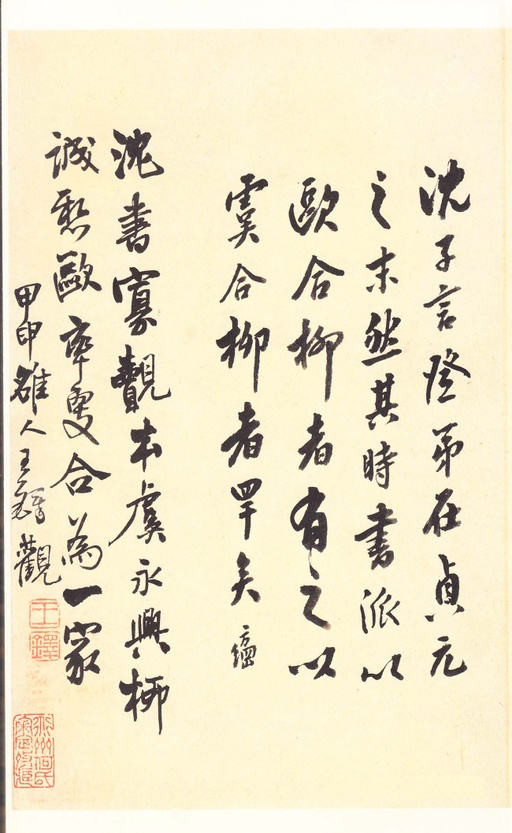 沈子言登第在貞元
之末然其時書派以
歐合柳者有之以
虞合柳者罕矣 瀛
沈書寡覯本虞永興柳
誠懸歐率更合為一家
甲申雒人王鐸觀
王鐸